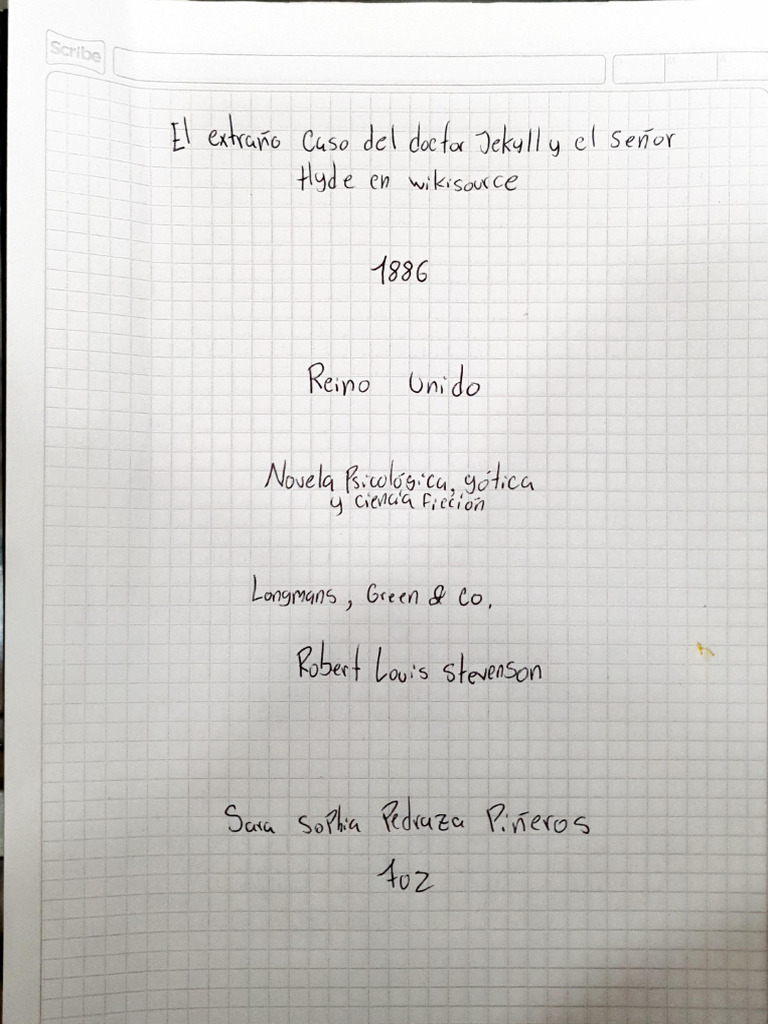 Scribe
El extraño caso del doctor Jekyll y el señor
Hyde en wikisource
1886
Reino Unido
Novela Psicológica, gótica
y ciencia ficción
Longmans, Green & Co.
Robert Louis Stevenson
Sara Sophia Pedraza Piñeros
702